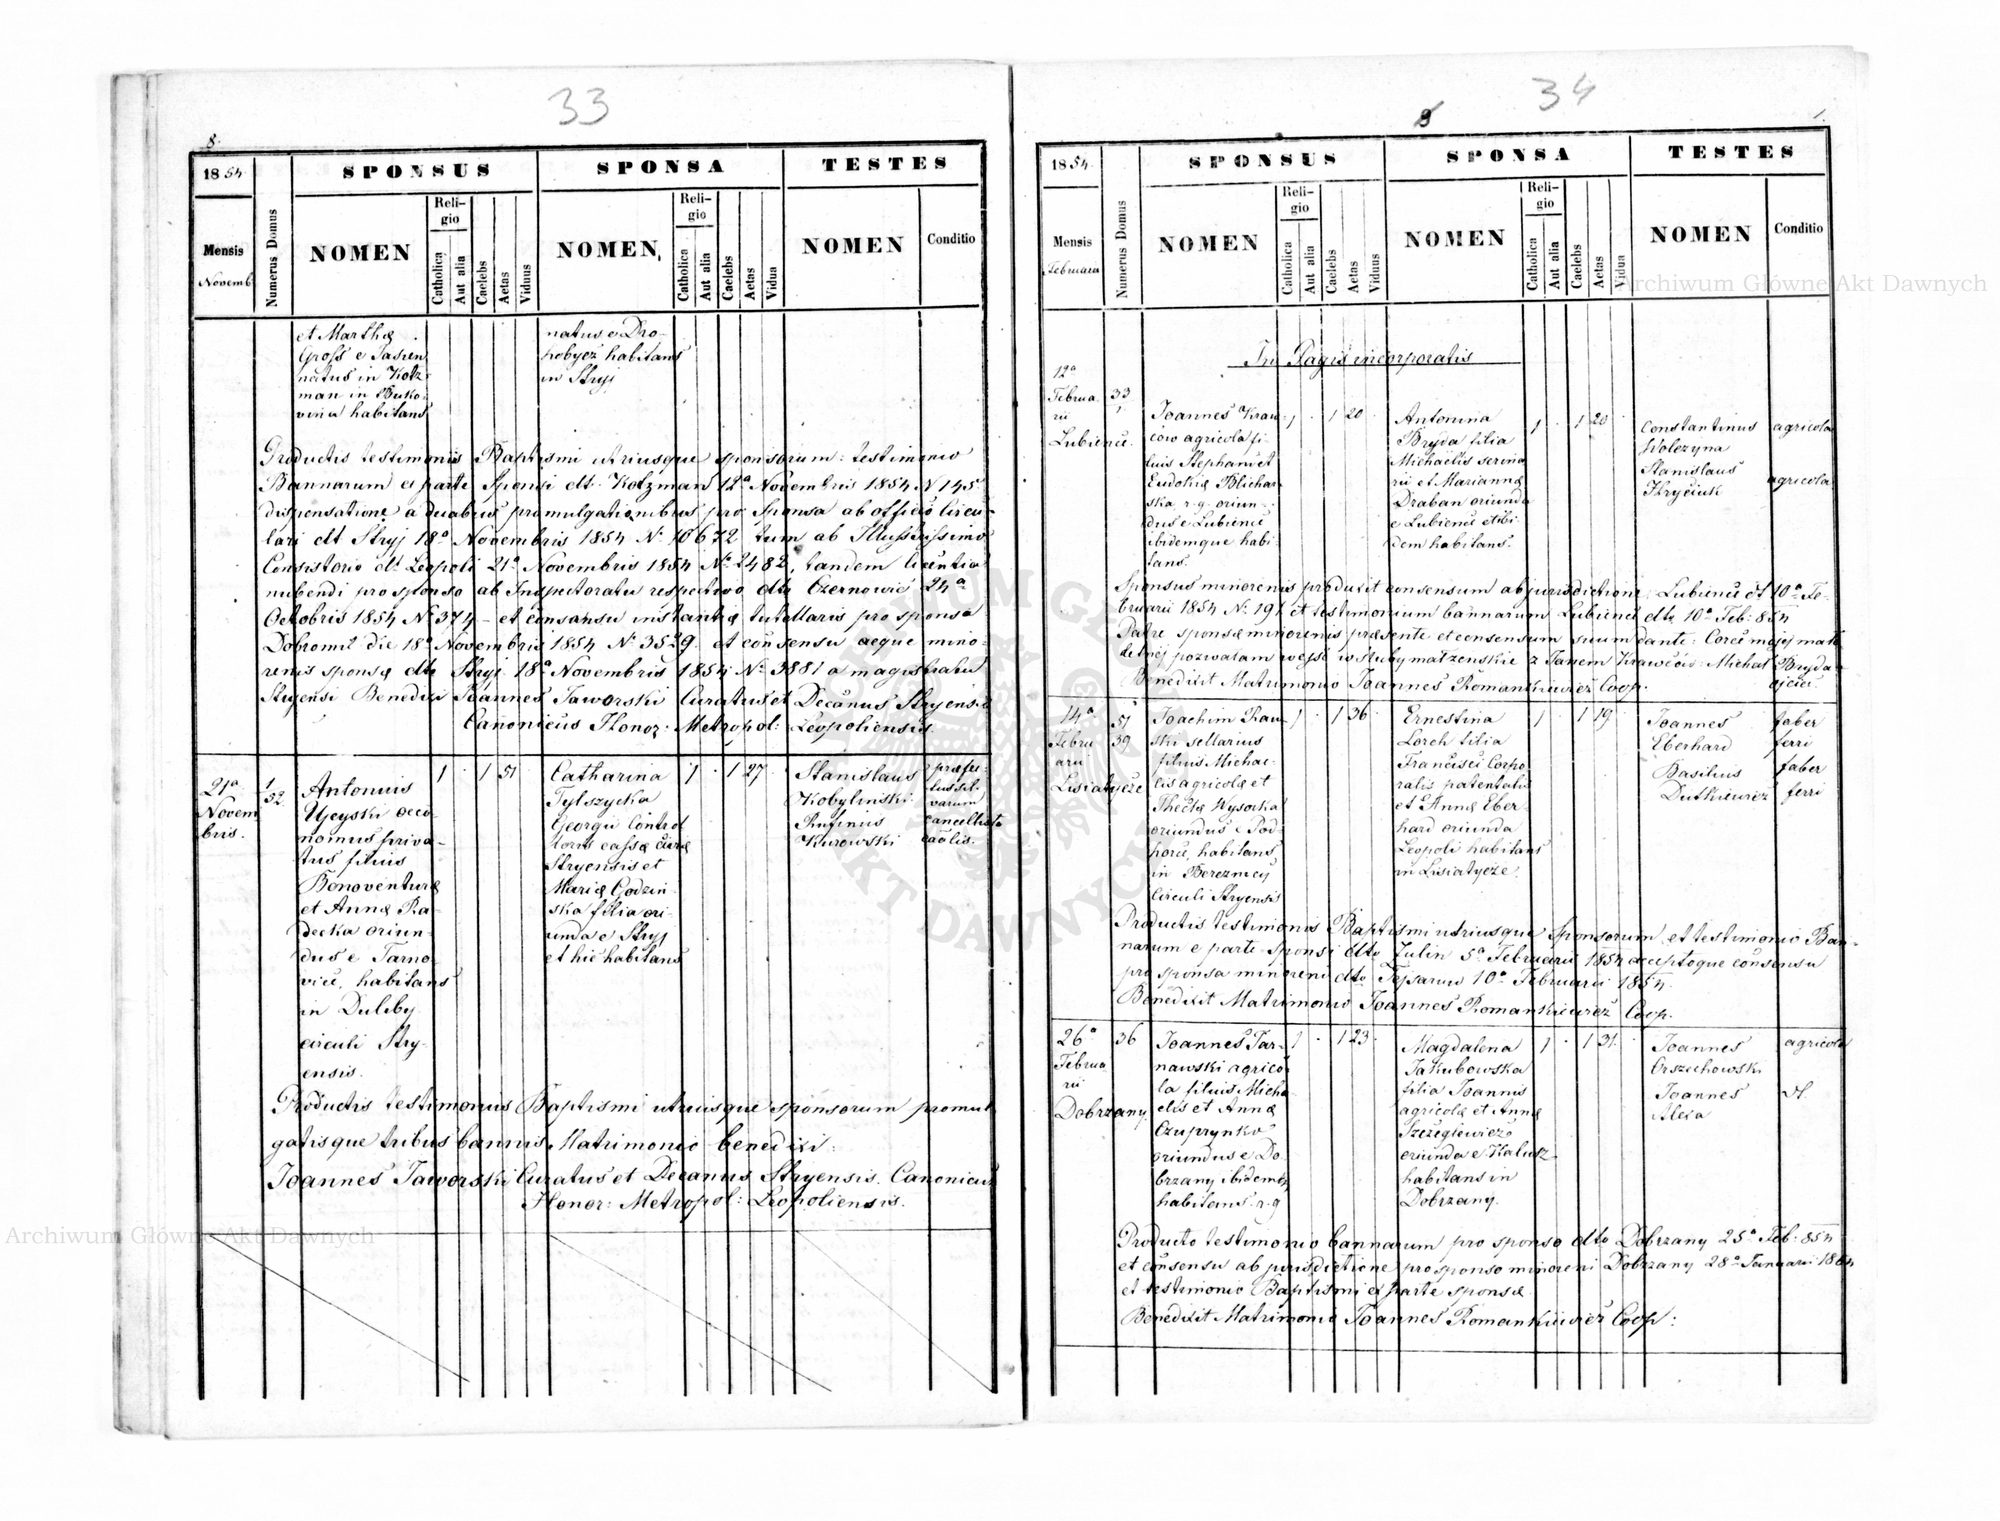 33
8.
1854.
SPONSUS
SPONSA
TESTES
Mensis
Novemb.
Numerus Domus
NOMEN
Religio
Catholica
Aut alia
Caelebs
Aetas
Viduus
NOMEN
Religio
Catholica
Aut alia
Caelebs
Aetas
Vidua
NOMEN
Conditio
et Marthæ
Gross e Jasien
natus in Kotz-
man in Buko-
vina habitans
natus e Dro-
hobycz habitans
in Stryj
Productis testimoniis Baptismi utriusque sponsorum: testimonio
Bannarum ex parte Sponsi dto Kotzman 12a Novembris 1854 N 145
dispensatione a duabus promulgationibus pro Sponsa ab officio Circu-
lari dto Stryj 18a Novembris 1854 N. 10672 tum ab Illustrissimo
Consistorio dto Leopoli 21a Novembris 1854 No 2482, tandem licentia
nubendi pro sponso ab Inspectoratu respectivo dto Czernowic 24a
Octobris 1854 No 374 – et consensu instantiæ tutellaris pro sponso
Dobromil die 18a Novembris 1854 N. 3529 et consensu aeque mino-
renis sponsæ dto Stryj 18a Novembris 1854 No 3881 a magistratu
Stryensi Benedixi Joannes Jaworski Curatus et Decanus Stryensis
Canonicus Honor: Metropol: Leopoliensis.
21a
Novem
bris.
1
52
Antonius
Ujeyski oeco-
nomus priva-
tus filius
Bonoventuræ
et Annæ Ra-
decka oriun-
dus e Tarno-
vice, habitans
in Duliby
circuli Stry-
ensis.
1 . 1 51
Catharina
Tylszycka
Georgii Control
loris cassæ circæ
Stryensis et
Mariæ Godzin-
ska filia ori-
unda e Stryj
et hic habitans
1 . 1 27
Stanislaus
Kobylinski
Rufinus
Kurowski
præfe-
ctus sil-
varum
cancellista
caolis.
Productis testimoniis Baptismi utriusque sponsorum promul
gatisque tribus bannis Matrimonio benedixi:
Joannes Jaworski Curatus et Decanus Stryensis. Canonicus
Honor: Metropol: Leopoliensis.
34
1.
1854.
SPONSUS
SPONSA
TESTES
Mensis
Februarii
Numerus Domus
NOMEN
Religio
Catholica
Aut alia
Caelebs
Aetas
Viduus
NOMEN
Religio
Catholica
Aut alia
Caelebs
Aetas
Vidua
NOMEN
Conditio
In Pagis incorporatis
12a
Februa-
rii
Lubience.
33
1
Joannes Kraw-
ców agricola fi-
lius Stephani et
Eudokiæ Blichar-
ska r. g. oriun-
dus e Lubience
ibidemque habi-
tans.
1 . 1 20
Antonina
Bryda filia
Michaëlis
et Mariannæ
Draban oriunda
e Lubience et ibi-
dem habitans.
1 . 1 20
Constantinus
Wolczyna
Stanislaus
Hryciuk
agricola
agricola
Sponsus minorenis produxit consensum ab jurisdictione Lubience dt 10a Fe-
bruarii 1854 N. 191 et testimonium bannarum Lubience dto 10a Feb: 854
Patre sponsæ minorenis præsente et consensum suum dante: Corce mojej mało
letnej pozwalam wejść w śluby małżenskie z Janem Krawców: Michał Bryda
ojciec.
Benedixit Matrimonio Joannes Romankiewicz Coop.
14a
Febru
arii
Lisiatycze
51
39
Joachim Raw-
ski sellarius
filius Michae-
lis agricolæ et
Theclæ Wysocka
oriundus e Pod-
horce, habitans
in Bereznicy
Circuli Stryensis
1 . 1 36
Ernestina
Lorch filia
Francisci Corpo
ralis patentalis
et Annæ Eber-
hard oriunda
Leopoli habitans
in Lisiatycze.
1 . 1 19
Joannes
Eberhard
Basilius
Dutkiewicz
faber
ferri
faber
ferri
Productis testimoniis Baptismi utriusque Sponsorum et testimonio Ban-
narum e parte Sponsi dto Zulin 5a Februarii 1854 acceptoque consensu
pro sponsa minoreni dto Tejsarow 10a Februarii 1854.
Benedixit Matrimonio Joannes Romankiewicz Coop.
26a
Februa
rii
Dobrzany
36
Joannes Tar-
nawski agrico-
la filius Micha-
elis et Annæ
Czuprynko
oriundus e Do-
brzany ibidemq
habitans r. g
1 . 1 23
Magdalena
Jakubowska
filia Joannis
agricolæ et Annæ
Szczeglewicz
oriunda e Kalusz
habitans in
Dobrzany.
1 . 1 31
Joannes
Orszechowski
Joannes
Alexa
agricola
dt.
Producto testimonio bannarum pro sponso dto Dobrzany 25a Feb: 854
et consensu ab jurisdictione pro sponso minoreni Dobrzany 28a Januarii 1854
et testimonio Baptismi ex parte sponsæ
Benedixit Matrimonio Joannes Romankiewicz Coop:
Archiwum Główne Akt Dawnych
Archiwum Główne Akt Dawnych